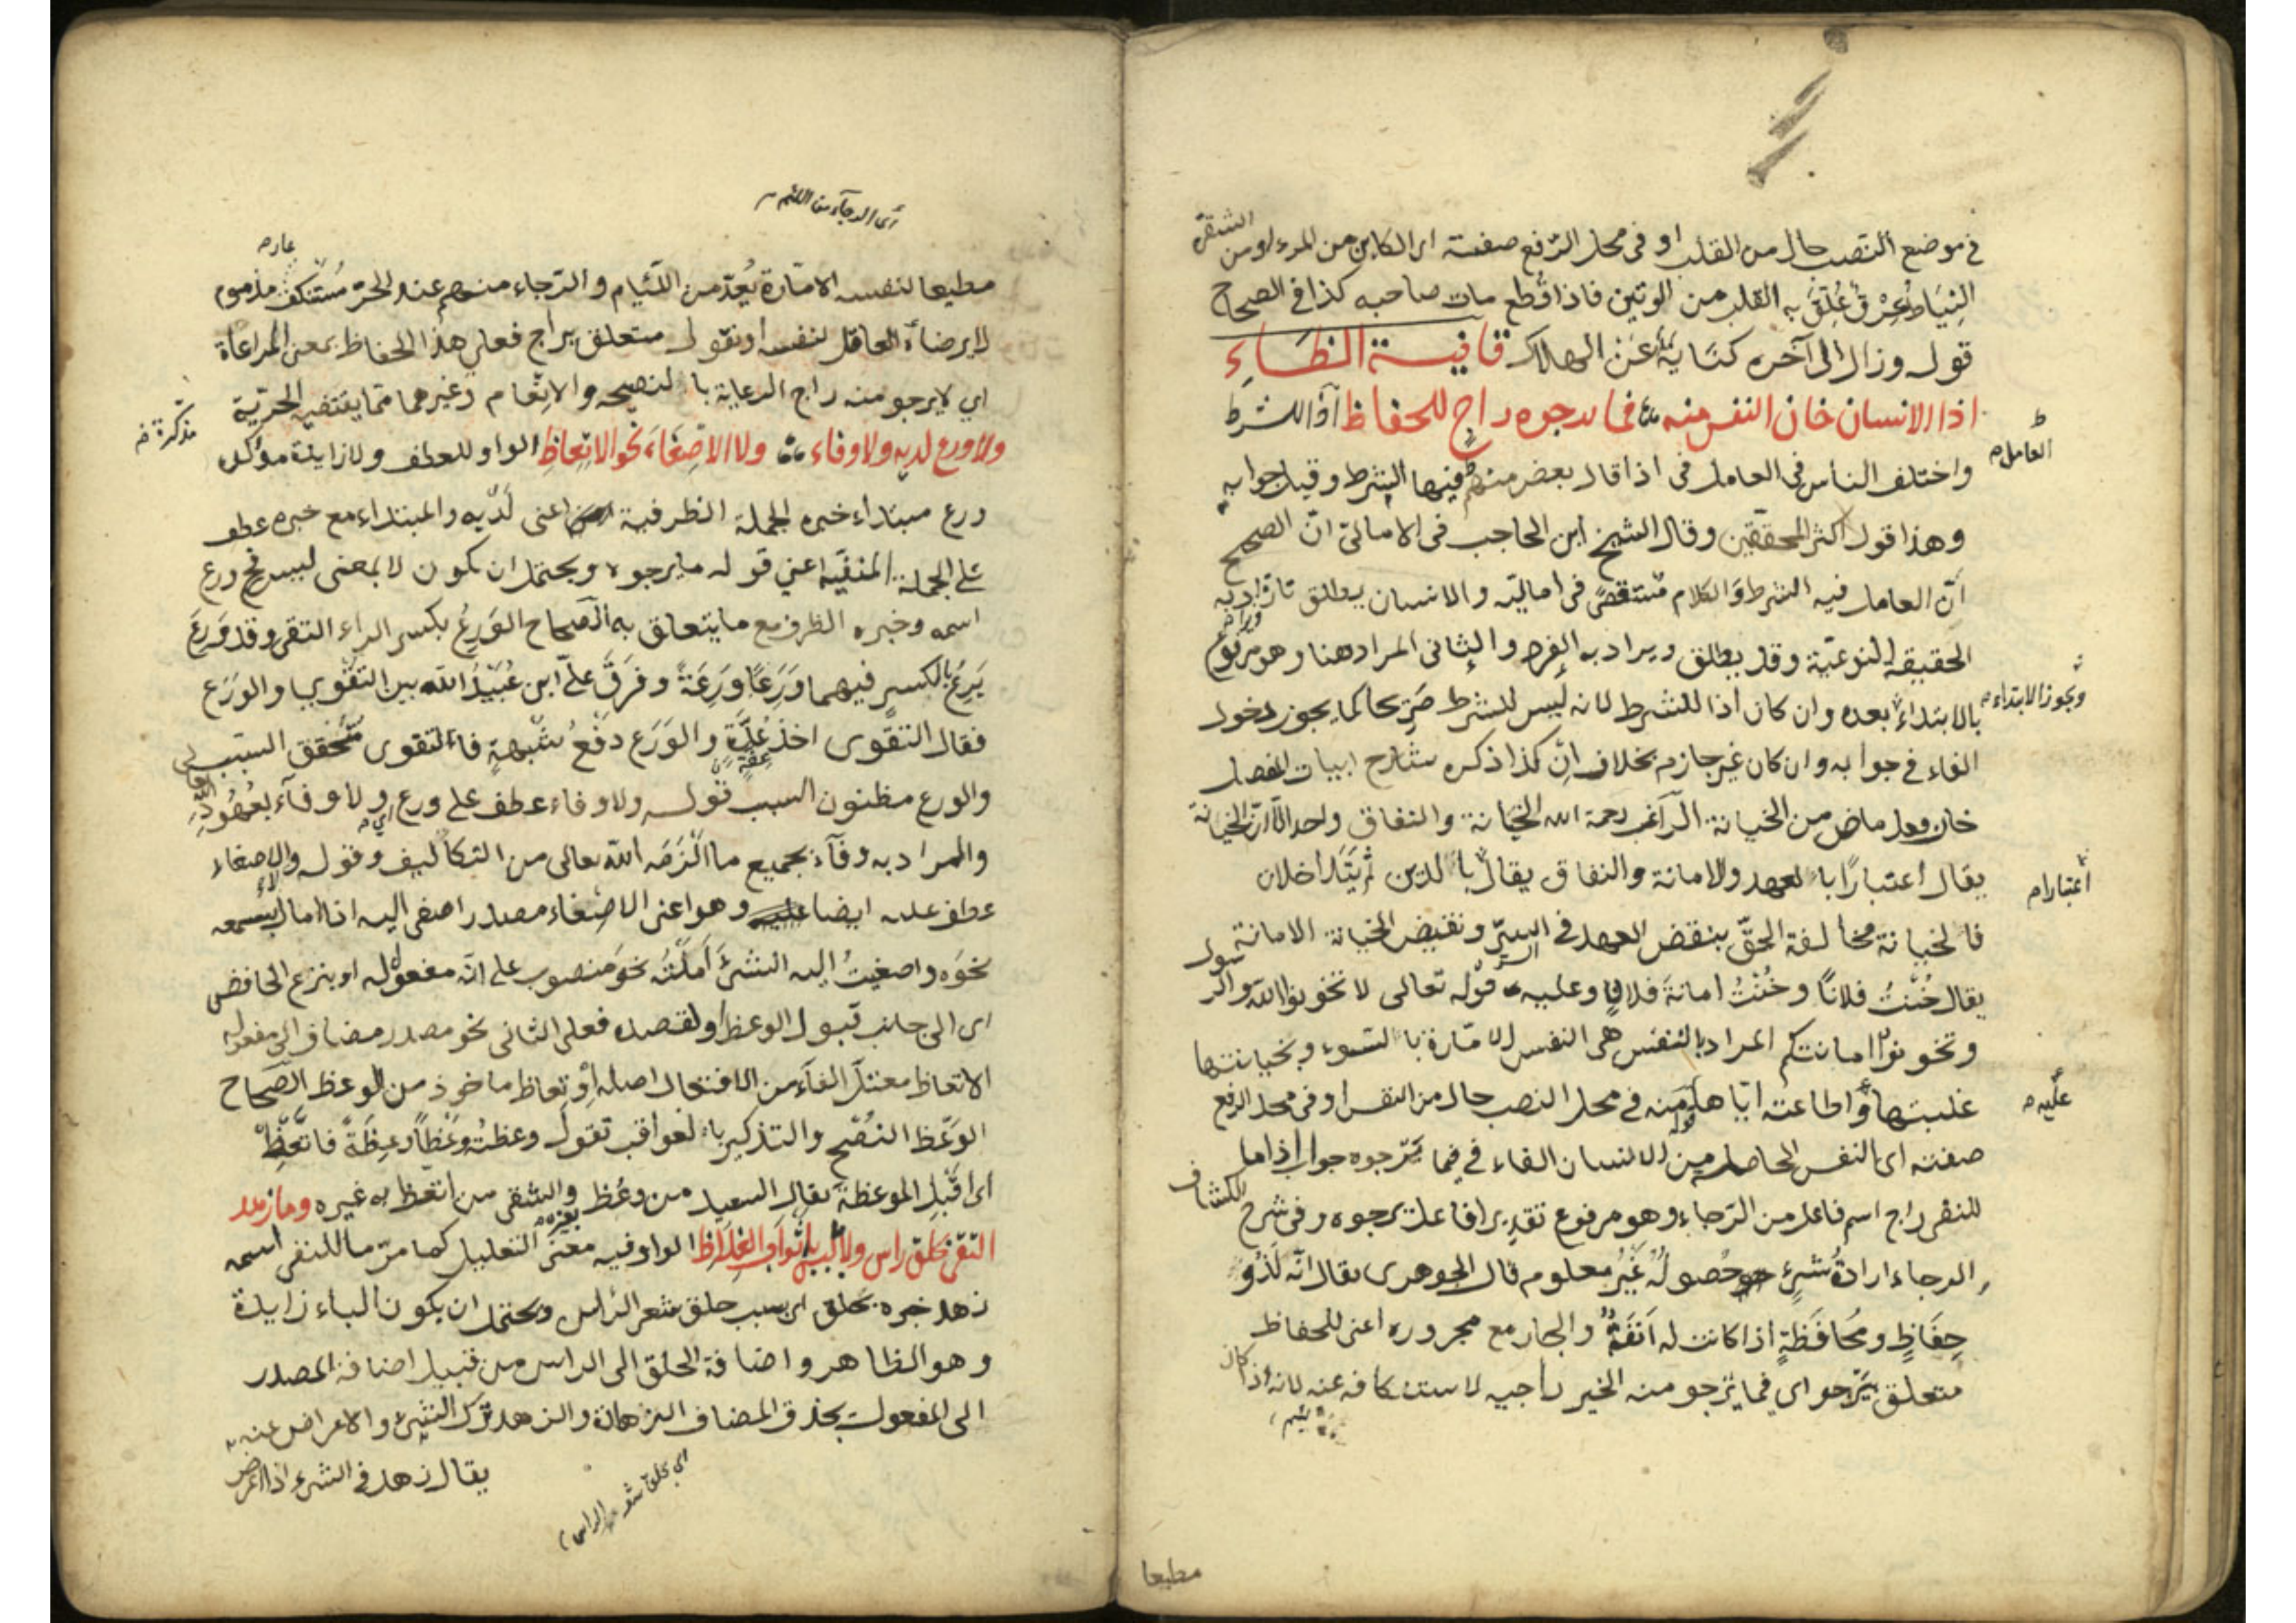 في موضع النصب حال من القلب او في محل الرفع صفته اي الكاين من المرء او من
الشقة
النياط عرق علق به القلب من الوتين فاذا قطع مات صاحبه كذا في الصحاح
قوله وزال الى آخره كناية عن الهلاك قافية الظاء
اذا الانسان خان النفس منه فما يرجوه راج للحفاظ اذا للشرط
واختلف الناس في العامل في اذا قال بعض منهم فيها الشرط وقيل جوابه
العامل
وهذا قول اكثر المحققين وقال الشيخ ابن الحاجب في الامالي ان الصحيح
ان العامل فيه الشرط والكلام مستقصى في اماليه والانسان يطلق تارة ويراد به
الحقيقة النوعية وقد يطلق ويراد به الفرد والثاني المراد هنا وهو مرفوع
بالابتداء بعده وان كان اذا للشرط لانه ليس للشرط صريحا كما يجوز دخول
ويجوز الابتداء
الفاء في جوابه وان كان غير جازم بخلاف ان كذا ذكره شارح ابيات المفصل
خان فعل ماض من الخيانة الراغب رحمة الله الخيانة والنفاق واحد الا ان الخيانة
يقال اعتبارا بالعهد والامانة والنفاق يقال بالدين ثم يتداخلان
اعتبارا
فالخيانة مخالفة الحق بنقض العهد في السر ونقيض الخيانة الامانة
يقال خنت فلانا وخنت امانة فلان وعليه قوله تعالى لا تخونوا الله والرسول
وتخونوا اماناتكم المراد بالنفس هي النفس الامارة بالسوء وبخيانتها
غلبتها واطاعته اياها منه في محل النصب حال من النفس او في محل الرفع
عليه
صفته اي النفس الحاصلة من الانسان الفاء في فما يرجوه جواب اذا ما
للنفي راج اسم فاعل من الرجاء وهو مرفوع تقديرا فاعل يرجوه وفي شرح
الكشاف
الرجاء ارادة شيء حصوله غير معلوم قال الجوهري يقال انه لذو
حفاظ ومحافظة اذا كانت له انفة والجار مع مجروره اعني للحفاظ
متعلق بيرجو اي فما يرجو منه الخير راجيه لاستنكافه عنه لانه اذا كان
مطيعا
اي الرجاء من اللئيم
مطيعا لنفسه الامارة يعد من اللئيام والرجاء منهم عند الحر مستنكف مذموم
عار
لا يرضاه العاقل لنفسه او نقول متعلق براج فعلى هذا الحفاظ بمعنى المراعاة
اي لا يرجو منه راج الرعاية بالنصيحة والانعام وغيرهما مما يقتضيه الحرية
ولا ورع لديه ولا وفاء ولا الاصغاء نحو الاتعاظ الواو للعطف ولا زايدة مؤكدة
ورع مبتداء خبره الجملة الظرفية اعني لديه والمبتداء مع خبره عطف
على الجملة المنفية اعني قوله ما يرجوه ويحتمل ان يكون لا بمعنى ليس فح ورع
اسمه وخبره الظرف مع ما يتعلق به الصحاح الورع بكسر الراء التقي وقد ورع
يرع بالكسر فيهما ورعا ورعة وفرق علي ابن عبيد الله بين التقوى والورع
فقال التقوى اخذ عدة والورع دفع شبهة فالتقوى متحقق السبب
والورع مظنون السبب قوله ولا وفاء عطف على ورع اي ولا وفاء بعهود الله
والمراد به وفاء بجميع ما الزمه الله تعالى من التكاليف وقوله والاصغاء
عطف عليه ايضا وهو اعني الاصغاء مصدر اصغى اليه اذا مال بسمعه
نحوه واصغيت اليه الشيء املته نحو منصوب على انه مفعوله او بنزع الخافض
اي الى جانب قبول الوعظ او لقصده فعلى الثاني نحو مصدر مضاف الى مفعوله
الاتعاظ معتل الفاء من الافتعال اصله اوتعاظ ماخوذ من الوعظ الصحاح
الوعظ النصح والتذكير بالعواقب تقول وعظته وعظا وعظة فاتعظ
اي اقبل الموعظة يقال السعيد من وعظ بغيره والشقي من اتعظ به غيره وما زهد
التقى بحلق راس ولا لبس باثواب الغلاظ الواو فيه معنى التعليل كما مر ما للنفي اسمه
زهد خبره بحلق اي بسبب حلق شعر الراس ويحتمل ان يكون الباء زايدة
وهو الظاهر واضافة الحلق الى الراس من قبيل اضافة المصدر
الى المفعول بحذف المضاف الزهادة والزهد ترك الشيء والاعراض عنه
يقال زهد في الشيء اذا اعرض
اي بحلق شعر الراس